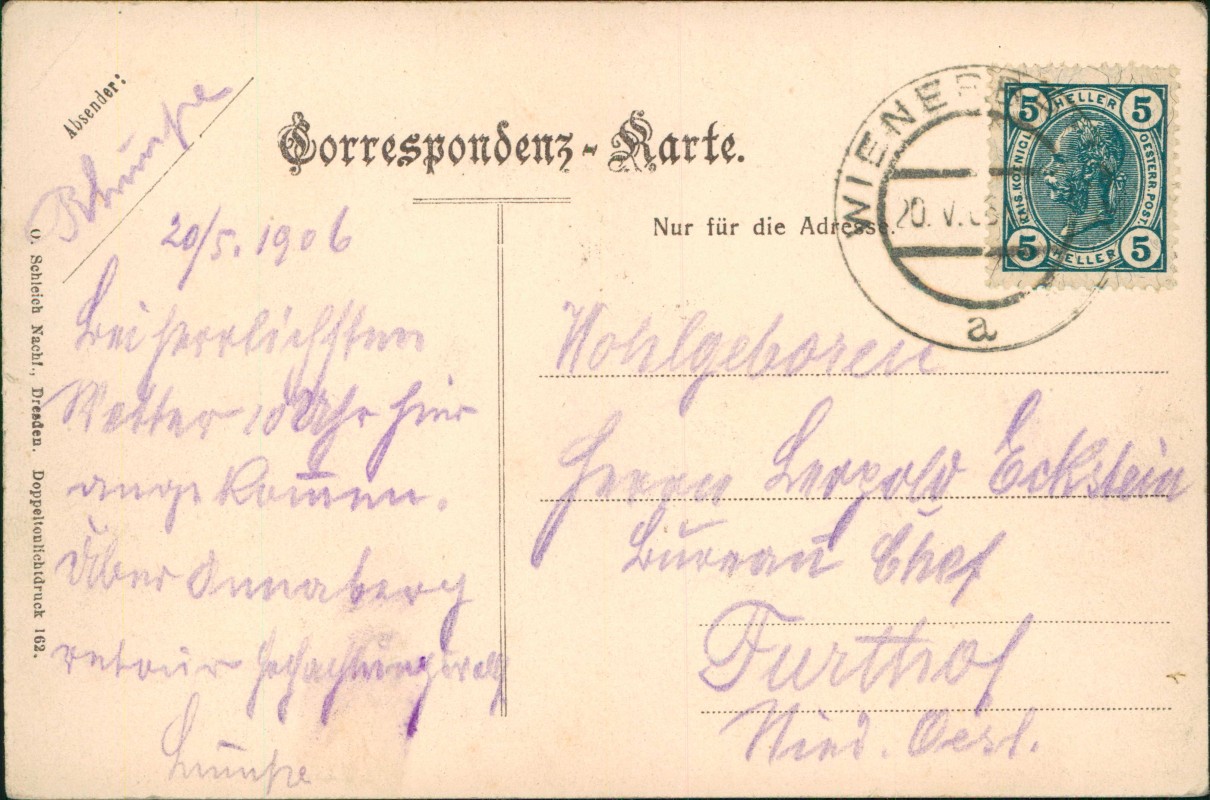 Absender:
Correspondenz-Karte.
Nur für die Adresse.
WIENERBR
20. V. 06
a
5 HELLER 5
KAIS. KOENIGL. OESTERR. POST
5 HELLER 5
20/5. 1906
Bei herrlichsten
Wetter 10 Uhr hier
angekommen.
Über Annaberg
retour Hochachtungsvoll
Wohlgeboren
Herrn Leopold Eckstein
Bureau Chef
Furthof
Nied. Oest.
O. Schleich Nachf., Dresden. Doppeltonlichtdruck 162.